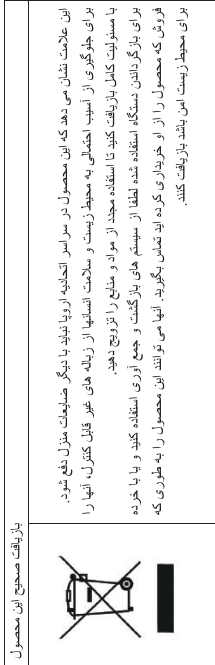 بازیافت صحیح این محصول
این علامت نشان می دهد که این محصول در سراسر اتحادیه اروپا نباید با دیگر ضایعات منزل دفع شود.
برای جلوگیری از آسیب احتمالی به محیط زیست و سلامت انسانها از زباله های غیر قابل کنترل، آنها را
با مسئولیت کامل بازیافت کنید تا استفاده مجدد از مواد و منابع را ترویج دهید.
برای بازگرداندن دستگاه استفاده شده لطفا از سیستم های بازگشت و جمع آوری استفاده کنید و یا با خرده
فروش که محصول را از او خریداری کرده اید تماس بگیرید. آنها می توانند این محصول را به طوری که
برای محیط زیست امن باشد بازیافت کنند.